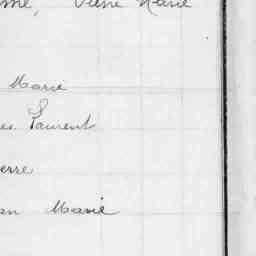 me, Pierre Marie
Marie
es. Laurent
erre
an Marie